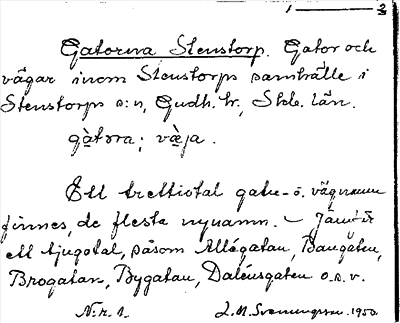 1 — 3
Gatorna Stenstorp. Gator och
vägar inom Stenstorps samhälle i
Stenstorps s:n, Gudh. hr, Skbg. län.
gàtɷra; væ̀ja.
Ett trettiotal gatu- o. vägnamn
finnes, de flesta nynamn. – Jämför
ett tjugotal, såsom Allégatan, Bangatan,
Brogatan, Bygatan, Daléusgatan o.s.v.
N:r 1. L.M. Svenungsson. 1950.